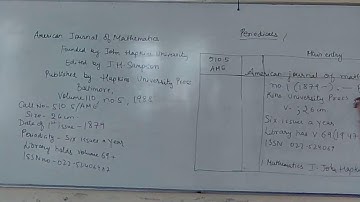 American Journal of Mathematics
Founded by John Hopkins University
Edited by J.H. Simpson
Published by Hopkins University Press
Batimore,
Volume 110, no 5, 1988
Call No- 510.5/AMG
Size- 26cm
Date of 1st issue - 1879
Periodicity - Six issues a year
Library holds volume 69+
ISSN no - 027-
Periodicals
Main entry
510.5
AMG
American journal of mat
no 1 (1879-).
University Press
v. ; 26cm
Six issues a year
Library has v 69 (1947
ISSN 027-
1. Mathematics I. John Hopk